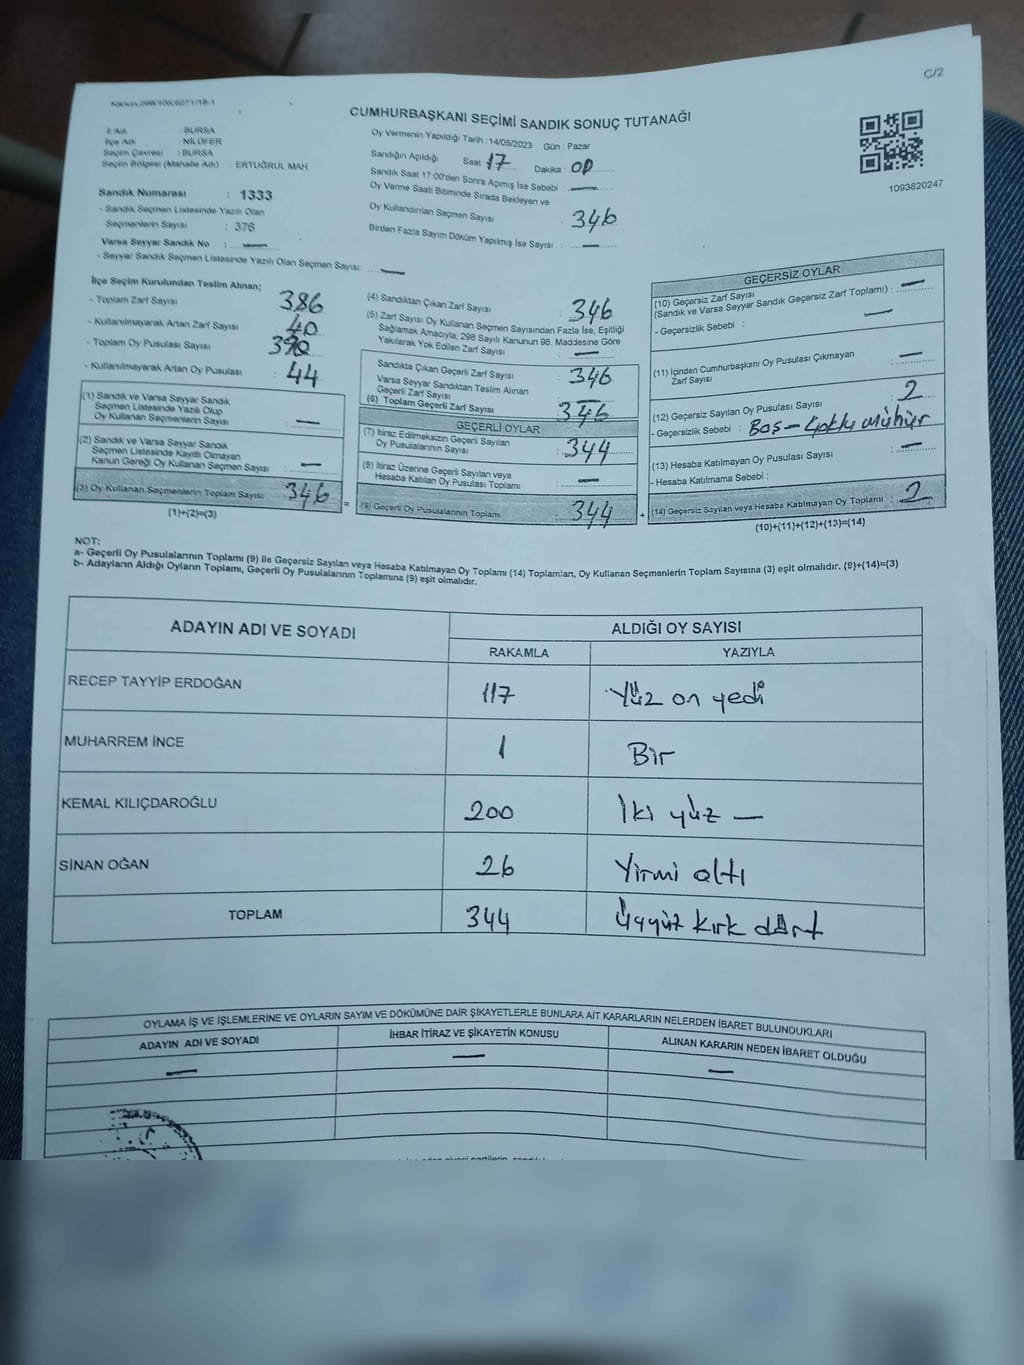 C/2
CUMHURBAŞKANI SEÇİMİ SANDIK SONUÇ TUTANAĞI
İl Adı : BURSA
İlçe Adı : NİLÜFER
Seçim Çevresi : BURSA
Seçim Bölgesi (Mahalle Adı) : ERTUĞRUL MAH.
Sandık Numarası : 1333
- Sandık Seçmen Listesinde Yazılı Olan
Seçmenlerin Sayısı : 376
Varsa Seyyar Sandık No : —
- Seyyar Sandık Seçmen Listesinde Yazılı Olan Seçmen Sayısı: —
Oy Vermenin Yapıldığı Tarih : 14/05/2023 Gün : Pazar
Sandığın Açıldığı Saat 17 Dakika : 00
Sandık Saat 17:00'den Sonra Açımış İse Sebebi : —
Oy Verme Saati Bitiminde Sırada Bekleyen ve
Oy Kullandırılan Seçmen Sayısı : 346
Birden Fazla Sayım Döküm Yapılmış İse Sayısı : —
1093820247
İlçe Seçim Kurulundan Teslim Alınan;
- Toplam Zarf Sayısı 386
- Kullanılmayarak Artan Zarf Sayısı 40
- Toplam Oy Pusulası Sayısı 390
- Kullanılmayarak Artan Oy Pusulası : 44
(1) Sandık ve Varsa Seyyar Sandık
Seçmen Listesinde Yazılı Olup
Oy Kullanan Seçmenlerin Sayısı : —
(2) Sandık ve Varsa Seyyar Sandık
Seçmen Listesinde Kayıtlı Olmayan
Kanun Gereği Oy Kullanan Seçmen Sayısı : —
(3) Oy Kullanan Seçmenlerin Toplam Sayısı : 346
(1)+(2)=(3)
=
(4) Sandıktan Çıkan Zarf Sayısı : 346
(5) Zarf Sayısı Oy Kullanan Seçmen Sayısından Fazla İse, Eşitliği
Sağlamak Amacıyla; 298 Sayılı Kanunun 98. Maddesine Göre
Yakılarak Yok Edilen Zarf Sayısı : —
Sandıkta Çıkan Geçerli Zarf Sayısı : 346
Varsa Seyyar Sandıktan Teslim Alınan
Geçerli Zarf Sayısı : —
(6) Toplam Geçerli Zarf Sayısı : 346
GEÇERLİ OYLAR
(7) İtiraz Edilmeksizin Geçerli Sayılan
Oy Pusulalarının Sayısı : 344
(8) İtiraz Üzerine Geçerli Sayılan veya
Hesaba Katılan Oy Pusulası Toplamı : —
(9) Geçerli Oy Pusulalarının Toplamı : 344
+
GEÇERSİZ OYLAR
(10) Geçersiz Zarf Sayısı
(Sandık ve Varsa Seyyar Sandık Geçersiz Zarf Toplamı) : —
- Geçersizlik Sebebi : —
(11) İçinden Cumhurbaşkanı Oy Pusulası Çıkmayan
Zarf Sayısı : —
(12) Geçersiz Sayılan Oy Pusulası Sayısı : 2
- Geçersizlik Sebebi : Boş - Çoklu Mühür
(13) Hesaba Katılmayan Oy Pusulası Sayısı : —
- Hesaba Katılmama Sebebi :
(14) Geçersiz Sayılan veya Hesaba Katılmayan Oy Toplamı : 2
(10)+(11)+(12)+(13)=(14)
NOT:
a- Geçerli Oy Pusulalarının Toplamı (9) ile Geçersiz Sayılan veya Hesaba Katılmayan Oy Toplamı (14) Toplamları, Oy Kullanan Seçmenlerin Toplam Sayısına (3) eşit olmalıdır. (9)+(14)=(3)
b- Adayların Aldığı Oyların Toplamı, Geçerli Oy Pusulalarının Toplamına (9) eşit olmalıdır.
ADAYIN ADI VE SOYADI ALDIĞI OY SAYISI
RAKAMLA YAZIYLA
RECEP TAYYİP ERDOĞAN 117 Yüz on yedi
MUHARREM İNCE 1 Bir
KEMAL KILIÇDAROĞLU 200 İki yüz —
SİNAN OĞAN 26 Yirmi altı
TOPLAM 344 Üçyüz kırk dört
OYLAMA İŞ VE İŞLEMLERİNE VE OYLARIN SAYIM VE DÖKÜMÜNE DAİR ŞİKAYETLERLE BUNLARA AİT KARARLARIN NELERDEN İBARET BULUNDUKLARI
ADAYIN ADI VE SOYADI İHBAR İTİRAZ VE ŞİKAYETİN KONUSU ALINAN KARARIN NEDEN İBARET OLDUĞU
— — —